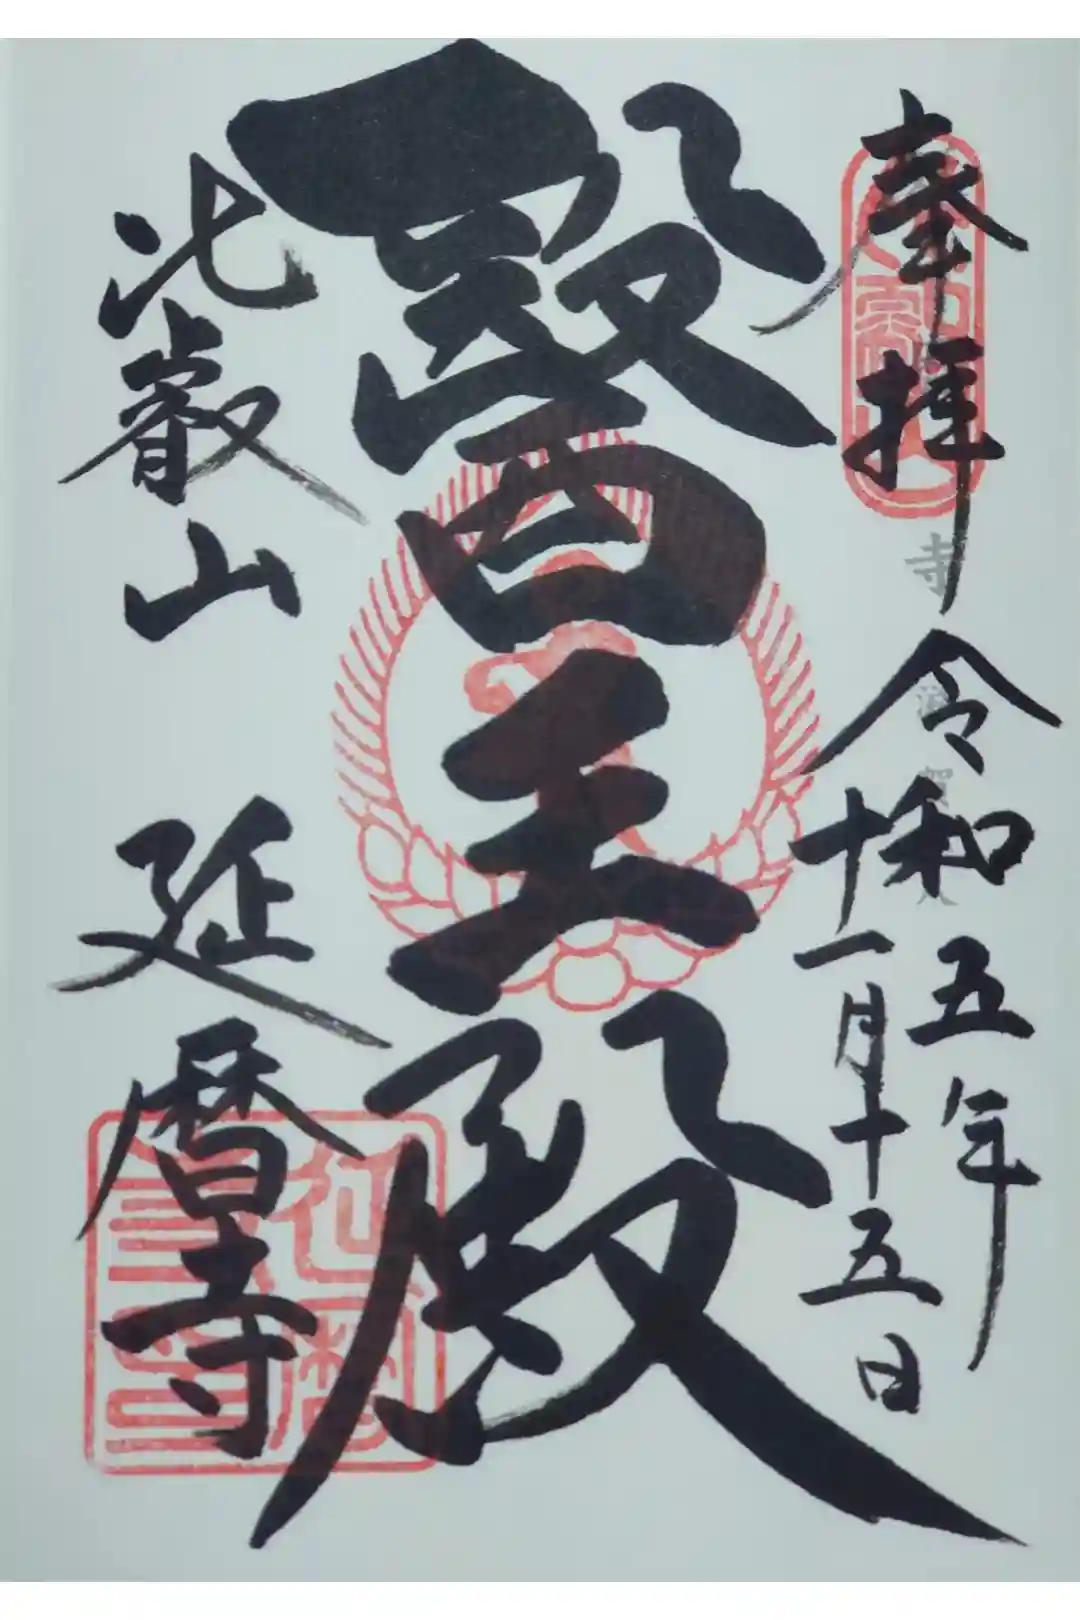 奉拝
令和五年
十一月十五日
醫王殿
比叡山 延暦寺